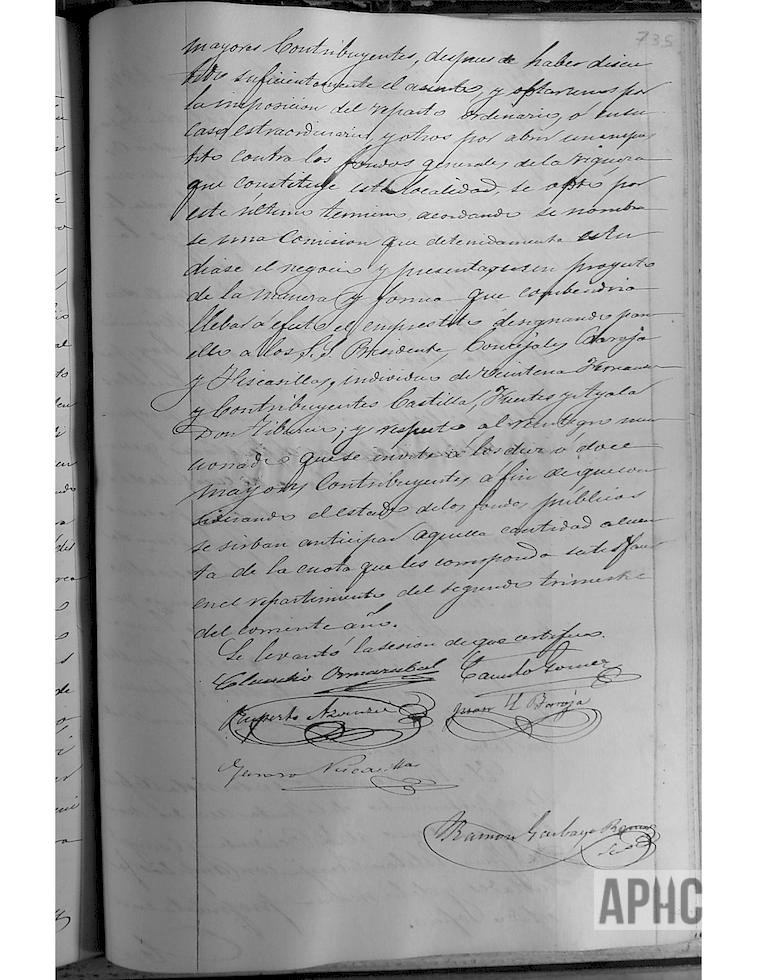 735
mayores Contribuyentes, despues de haber discu
tido suficientemente el asunto, y optar unos por
la imposicion del reparto ordinario, ó en su
caso, estraordinario, y otros por abrir un empres
tito contra los fondos generales de la riqueza
que constituye esta localidad, se optó por
este ultimo termino, acordando se nombra
se una Comision que detenidamente estu
diase el negocio y presentase un proyecto
de la manera y forma que combendria
llebar á efecto el emprestito designando para
ello a los S.S. Presidente, Concejales Baroja
y Niscasillas, individuo de Quintena Fernandez
y Contribuyentes Castilla, Fuentes y Ayala
Don Tiburcio; y respecto al reintegro men
cionado que se invite á los diez ó doce
mayores Contribuyentes á fin de que con
siderando el estado de los fondos publicos
se sirban anticipar aquella cantidad a cuen
ta de la cuota que les corresponda satisfacer
en el repartimiento del segundo trimestre
del corriente año.
Se levantó la sesion de que certifico.
Claudio Camilo Gomez
Ruperto Juan H Baroja
Genaro
Ramon Garbayo
Sro
APHC